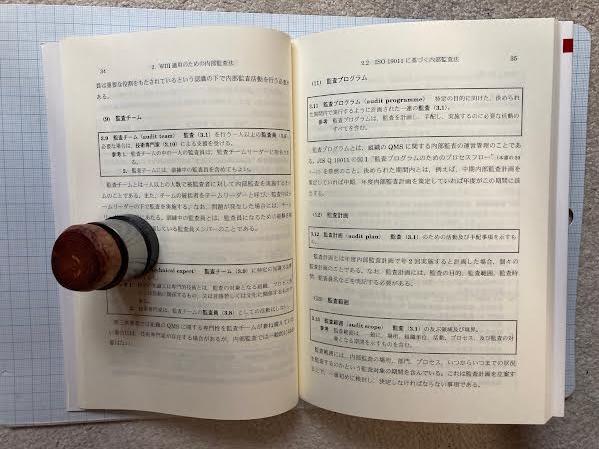 34
2. WDI 適用のための内部監査法
員は重要な役割をもたされているという認識の下で内部監査活動を行う必要が
ある。
(9) 監査チーム
3.9 監査チーム (audit team) 監査 (3.1) を行う一人以上の監査員
必要な場合は, 技術専門家 (3.10) による支援を受ける。
参考 1. 監査チームの中の一人の監査員は, 監査チームリーダーに
2. 監査チームには, 訓練中の監査員を含めてもよい。
監査チームとは一人以上の人数で被監査者に対して内部監査を実施するチー
ムのことである。また, チームの統括者をチームリーダーと呼び, 監査
ームリーダーの下で監査を実施する。なお, 問題が発生した場合には, チー
訓練中の監査員とは, 監査員になるための経験を
している監査員メンバーのことである。
technical expert) 監査チーム (3.9) に特定の知識
専門的技術とは, 監査の対象となる組織, プロセス
活動に関係するもの, 又は言語若しくは文化に関係するもの
技術専門家は, 監査チームの監査員 (3.8) としての活動はしない。
第三者審査では組織の QMS に関する専門性を監査チームが兼ね備えていな
い場合には, 技術専門家の存在する場合があるが, 内部監査では一般的には
要はない。
2.2 ISO 19011 に基づく内部監査法
35
(11) 監査プログラム
3.11 監査プログラム (audit programme) 特定の目的に向けた, 決められ
た期間内で実行するように計画された一連の監査 (3.1)。
参考 監査プログラムは, 監査を計画し, 手配し, 実施するのに必要な活動の
すべてを含む。
監査プログラムとは, 組織の QMS に関する内部監査の運営管理のことであ
る。JIS Q 19011 の図 1 “監査プログラムのためのプロセスフロー”
を参照のこと。決められた期間内とは, 例えば, 中期内部監査計画を
策定していれば中期, 年度内部監査計画を策定していれば年度がこの期間に該
当する。
(12) 監査計画
3.12 監査計画 (audit plan) 監査 (3.1) のための活動及び手配事項を示すもの。
監査計画とは年度内部監査計画で年 2 回実施すると計画した場合, 個々の
監査計画のことである。なお, 監査計画には, 監査の目的, 監査範囲, 監査時
間, 監査員名などを明記する必要がある。
(13) 監査範囲
3.13 監査範囲 (audit scope) 監査 (3.1) の及ぶ領域及び境界。
参考 監査範囲は一般に, 場所, 組織単位, 活動, プロセス, 及び監査の対
象となる期間を示すものを含む。
監査範囲には, 内部監査の場所, 部門, プロセス, いつからいつまでの状況
を監査するのかという監査対象の期間を含んでいる。これは監査計画を立案す
る上で, 一番初めに検討し, 決定しなければならない事項である。